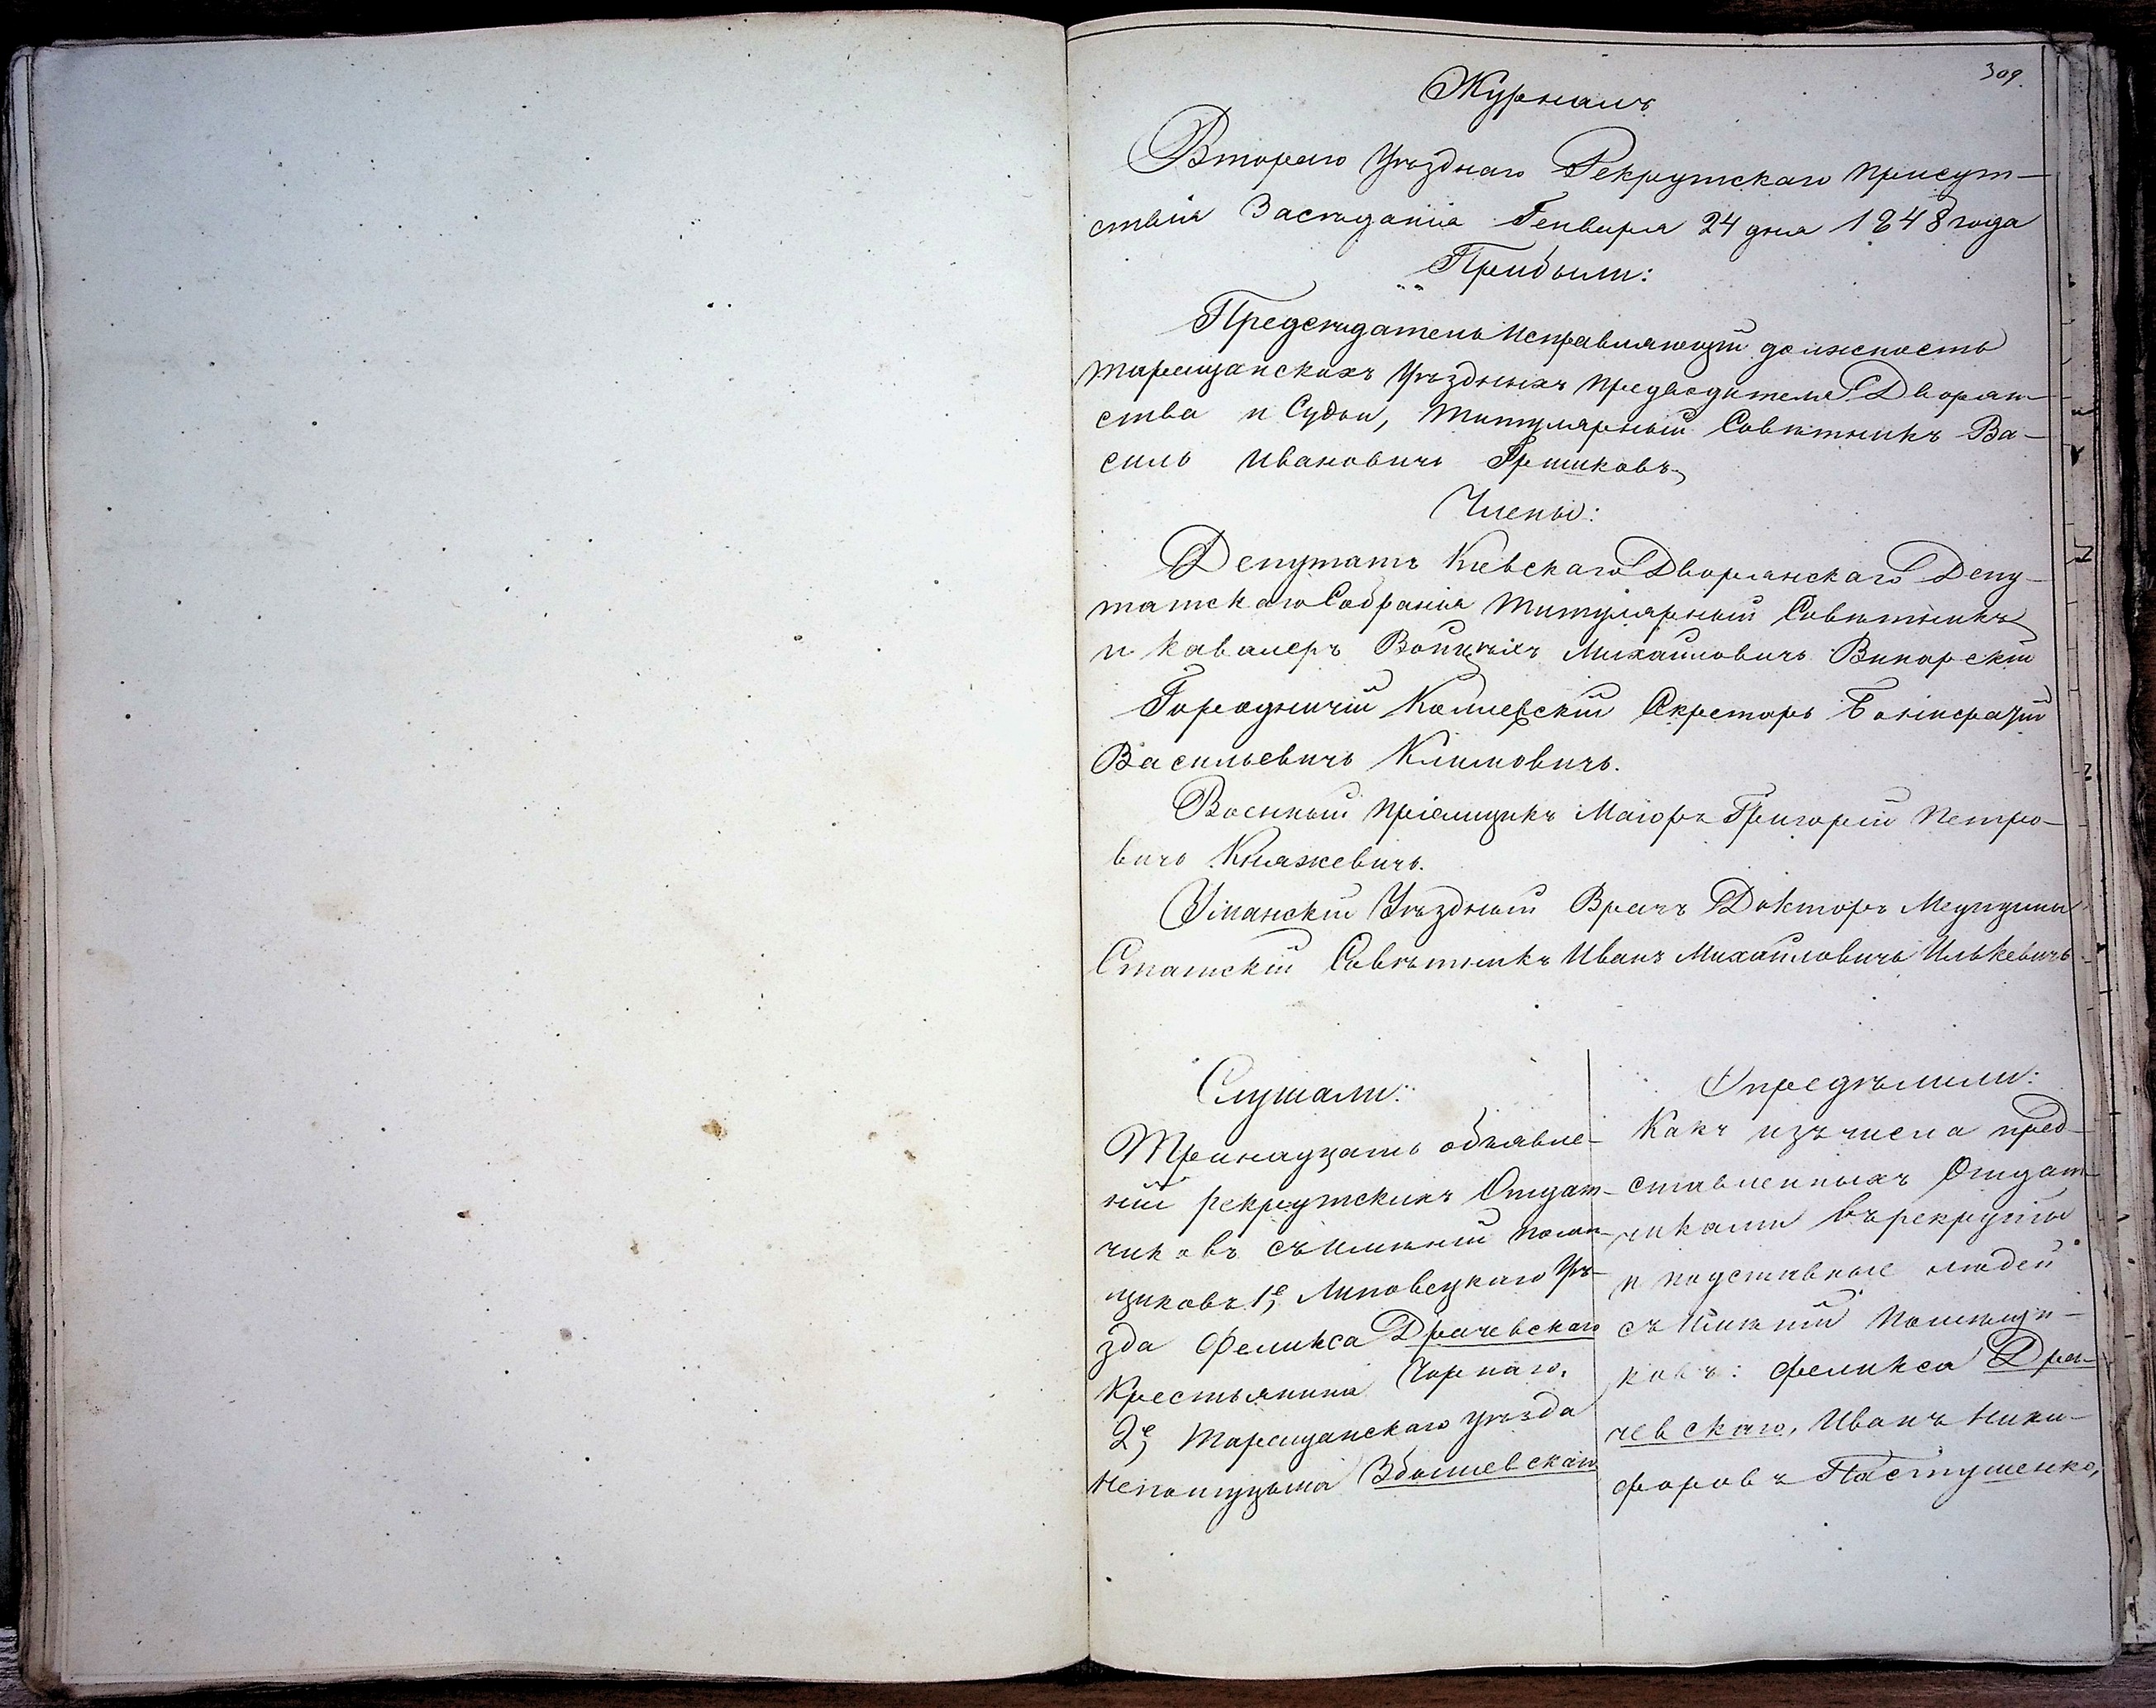 309.
Журналъ
Втораго Уѣзднаго Рекрутскаго присут-
ствія Засѣданіа Генваря 24 дня 1848 года
Прибыли:
Предсѣдатель Исправляющій должность
таращанскихъ Уѣздныхъ предводителя Дворян-
ства и Судьи, Титулярный Совѣтникъ Ва-
силь Ивановичь Гришковъ
Члены:
Депутатъ Кіевскаго Дворянскаго Депу-
татскаго Собранія Титулярный Совѣтникъ
и Кавалеръ Войцѣхъ Михайловичь
Городничій Колежскій Секретарь
Васильевичъ Климовичъ.
Военный пріемщикъ Маіоръ Григорій Петро-
вичъ Княжевичъ.
Уманскій Уѣздный Врачъ Докторъ Медицины
Статскій Совѣтникъ Иванъ Михайловичъ Илькевичъ
Слушали:
Тринадцать объявле-
ній рекрутскихъ Отдат-
чиковъ съ имѣній помѣ-
щиковъ 1е, Липовецкаго Уѣ-
зда Феликса Драчевскаго
Крестьянина Чорнаго.
2е, Таращанскаго уѣзда
Непомуцына
Опредѣлили:
Какъ изъ числа пред-
ставленныхъ Отдат-
чиками въ рекруты
и подставные людей
съ Имѣній Помѣщи-
ковъ: Феликса Дра-
чевскаго, Иванъ Ники-
форовъ Пастушенко,